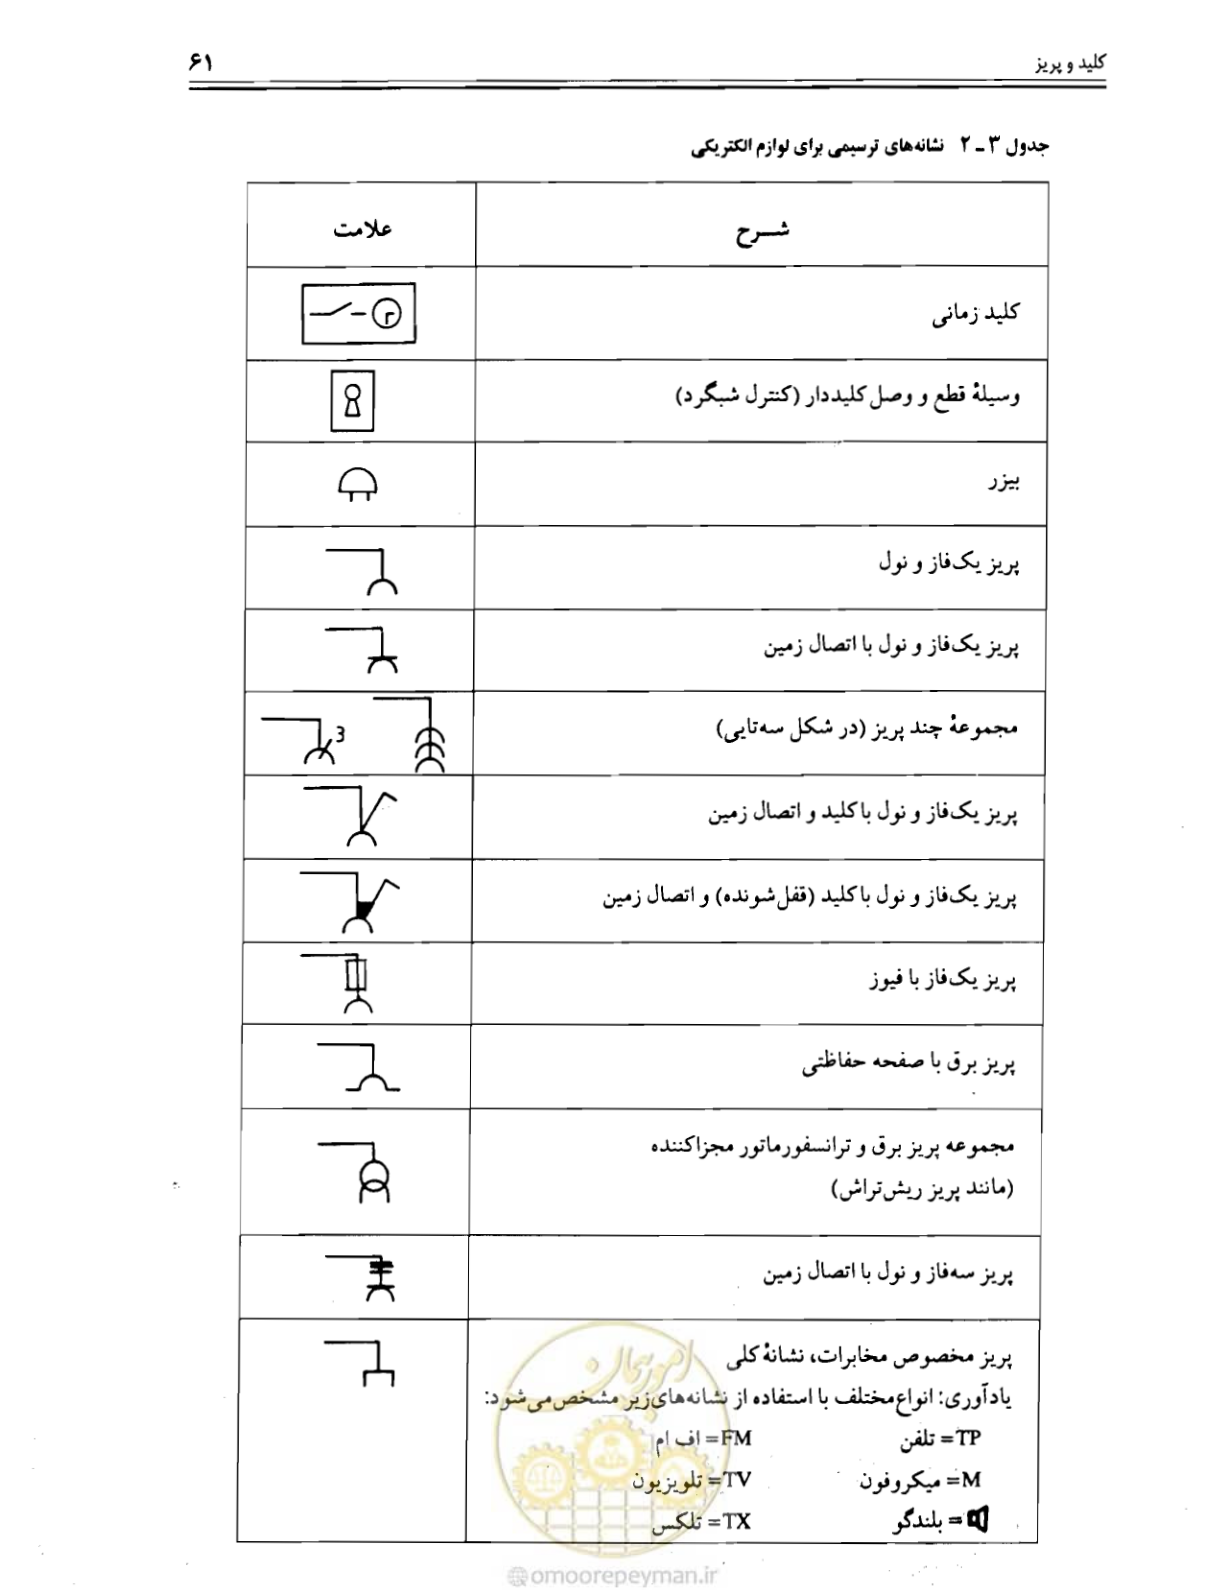 کلید و پریز ۶۱
جدول ۳ ـ ۲ نشانه‌های ترسیمی برای لوازم الکتریکی
شـــرح علامت
کلید زمانی
وسیلهٔ قطع و وصل کلیددار (کنترل شبگرد)
بیزر
پریز یک‌فاز و نول
پریز یک‌فاز و نول با اتصال زمین
مجموعهٔ چند پریز (در شکل سه‌تایی) 3
پریز یک‌فاز و نول با کلید و اتصال زمین
پریز یک‌فاز و نول با کلید (قفل‌شونده) و اتصال زمین
پریز یک‌فاز با فیوز
پریز برق با صفحه حفاظتی
مجموعه پریز برق و ترانسفورماتور مجزاکننده
(مانند پریز ریش‌تراش)
پریز سه‌فاز و نول با اتصال زمین
پریز مخصوص مخابرات، نشانهٔ کلی
یادآوری: انواع مختلف با استفاده از نشانه‌های زیر مشخص می‌شود:
TP= تلفن FM= اف ام
M= میکروفون TV= تلویزیون
= بلندگو TX= تلکس
امور پیمان
omoorepeyman.ir